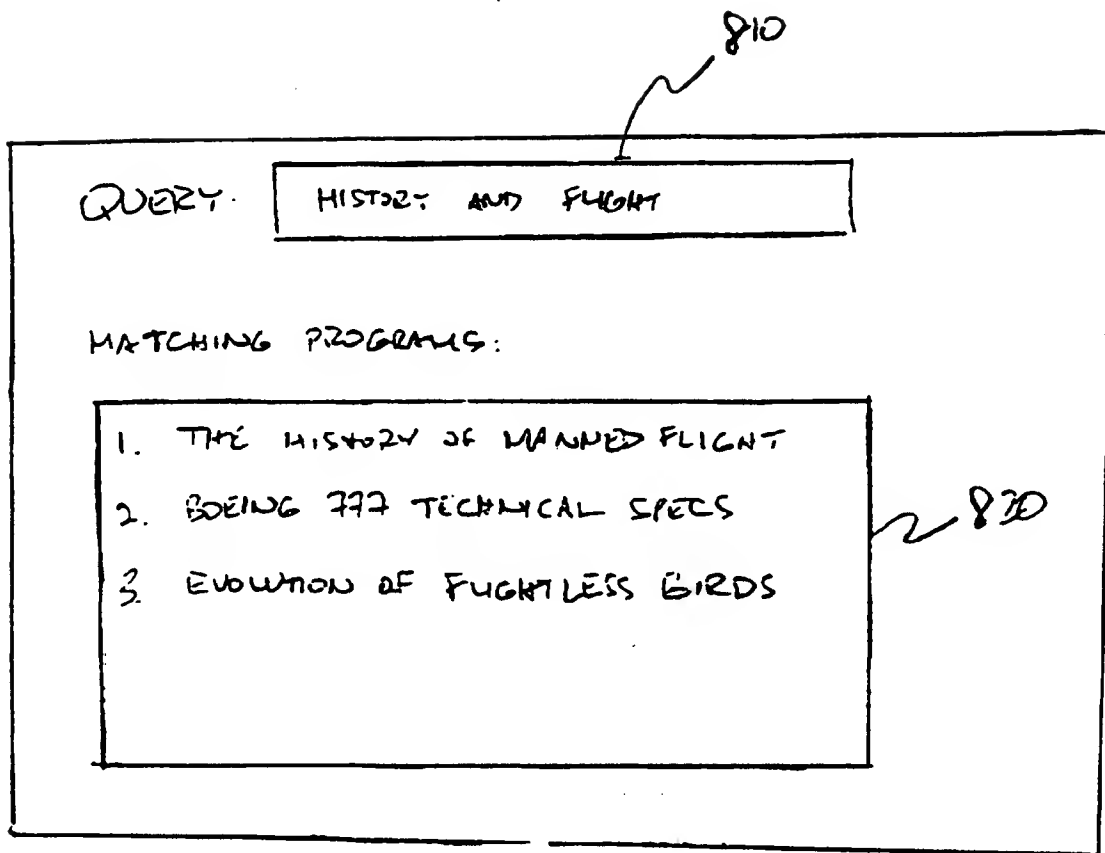 810
QUERY: HISTORY AND FLIGHT
MATCHING PROGRAMS:
1. THE HISTORY OF MANNED FLIGHT
2. BOEING 777 TECHNICAL SPECS
820
3. EVOLUTION OF FLIGHTLESS BIRDS